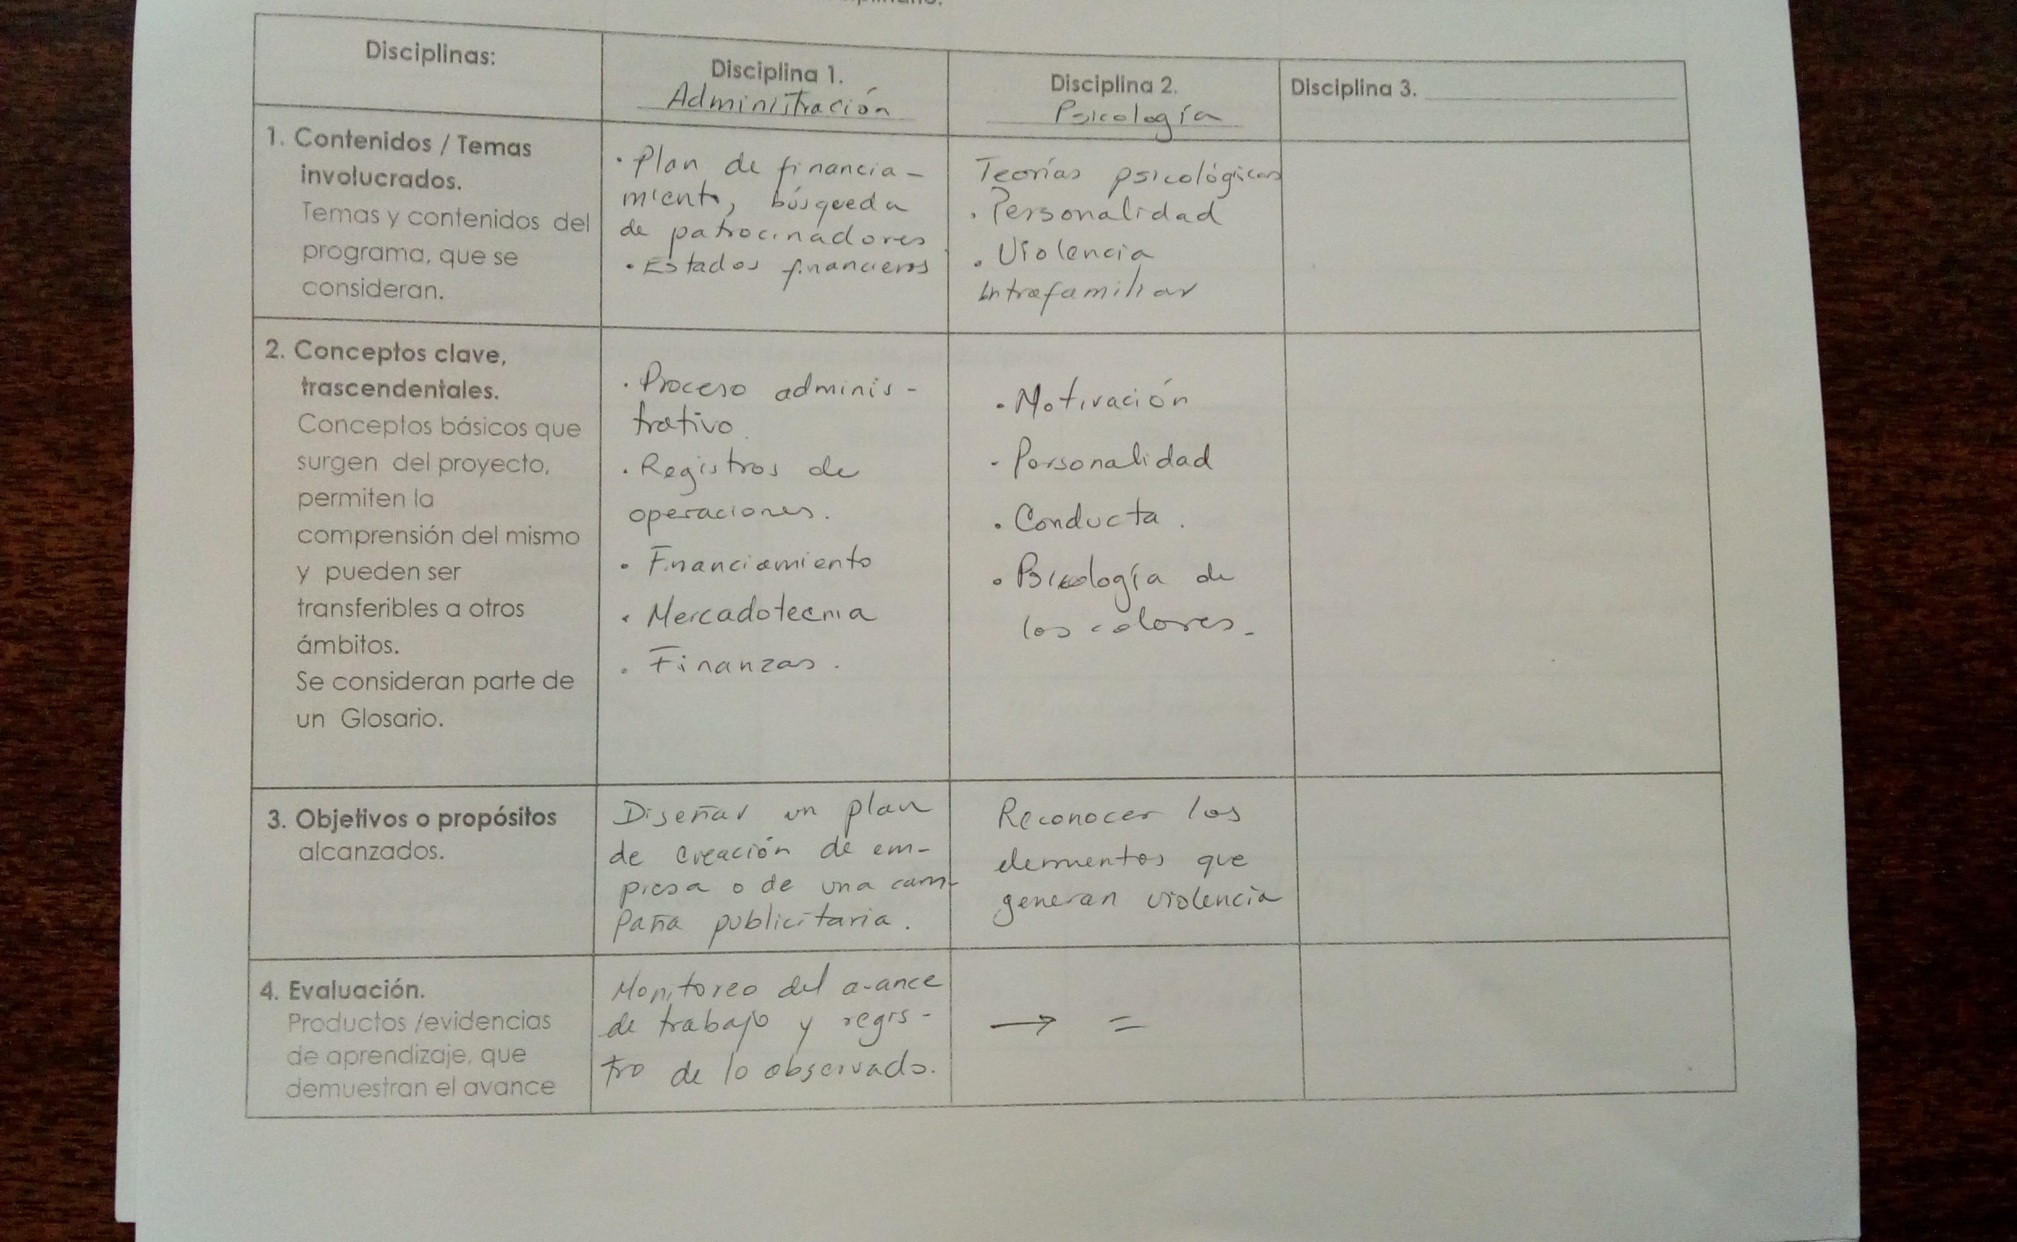 Disciplinas:
Disciplina 1.
Administración
Disciplina 2.
Psicología
Disciplina 3.
1. Contenidos / Temas
involucrados.
Temas y contenidos del
programa, que se
consideran.
· Plan de financia-
miento, búsqueda
de patrocinadores
· Estados financieros
Teorías psicológicas
· Personalidad
· Violencia
intrafamiliar
2. Conceptos clave,
trascendentales.
Conceptos básicos que
surgen del proyecto,
permiten la
comprensión del mismo
y pueden ser
transferibles a otros
ámbitos.
Se consideran parte de
un Glosario.
· Proceso adminis-
trativo.
· Registros de
operaciones.
· Financiamiento
· Mercadotecnia
· Finanzas.
· Motivación
- Personalidad
· Conducta.
· Psicología de
los colores.
3. Objetivos o propósitos
alcanzados.
Diseñar un plan
de creación de em-
presa o de una cam-
paña publicitaria.
Reconocer los
elementos que
generan violencia
4. Evaluación.
Productos /evidencias
de aprendizaje, que
demuestran el avance
Monitoreo del avance
de trabajo y regis-
tro de lo observado.
→ =